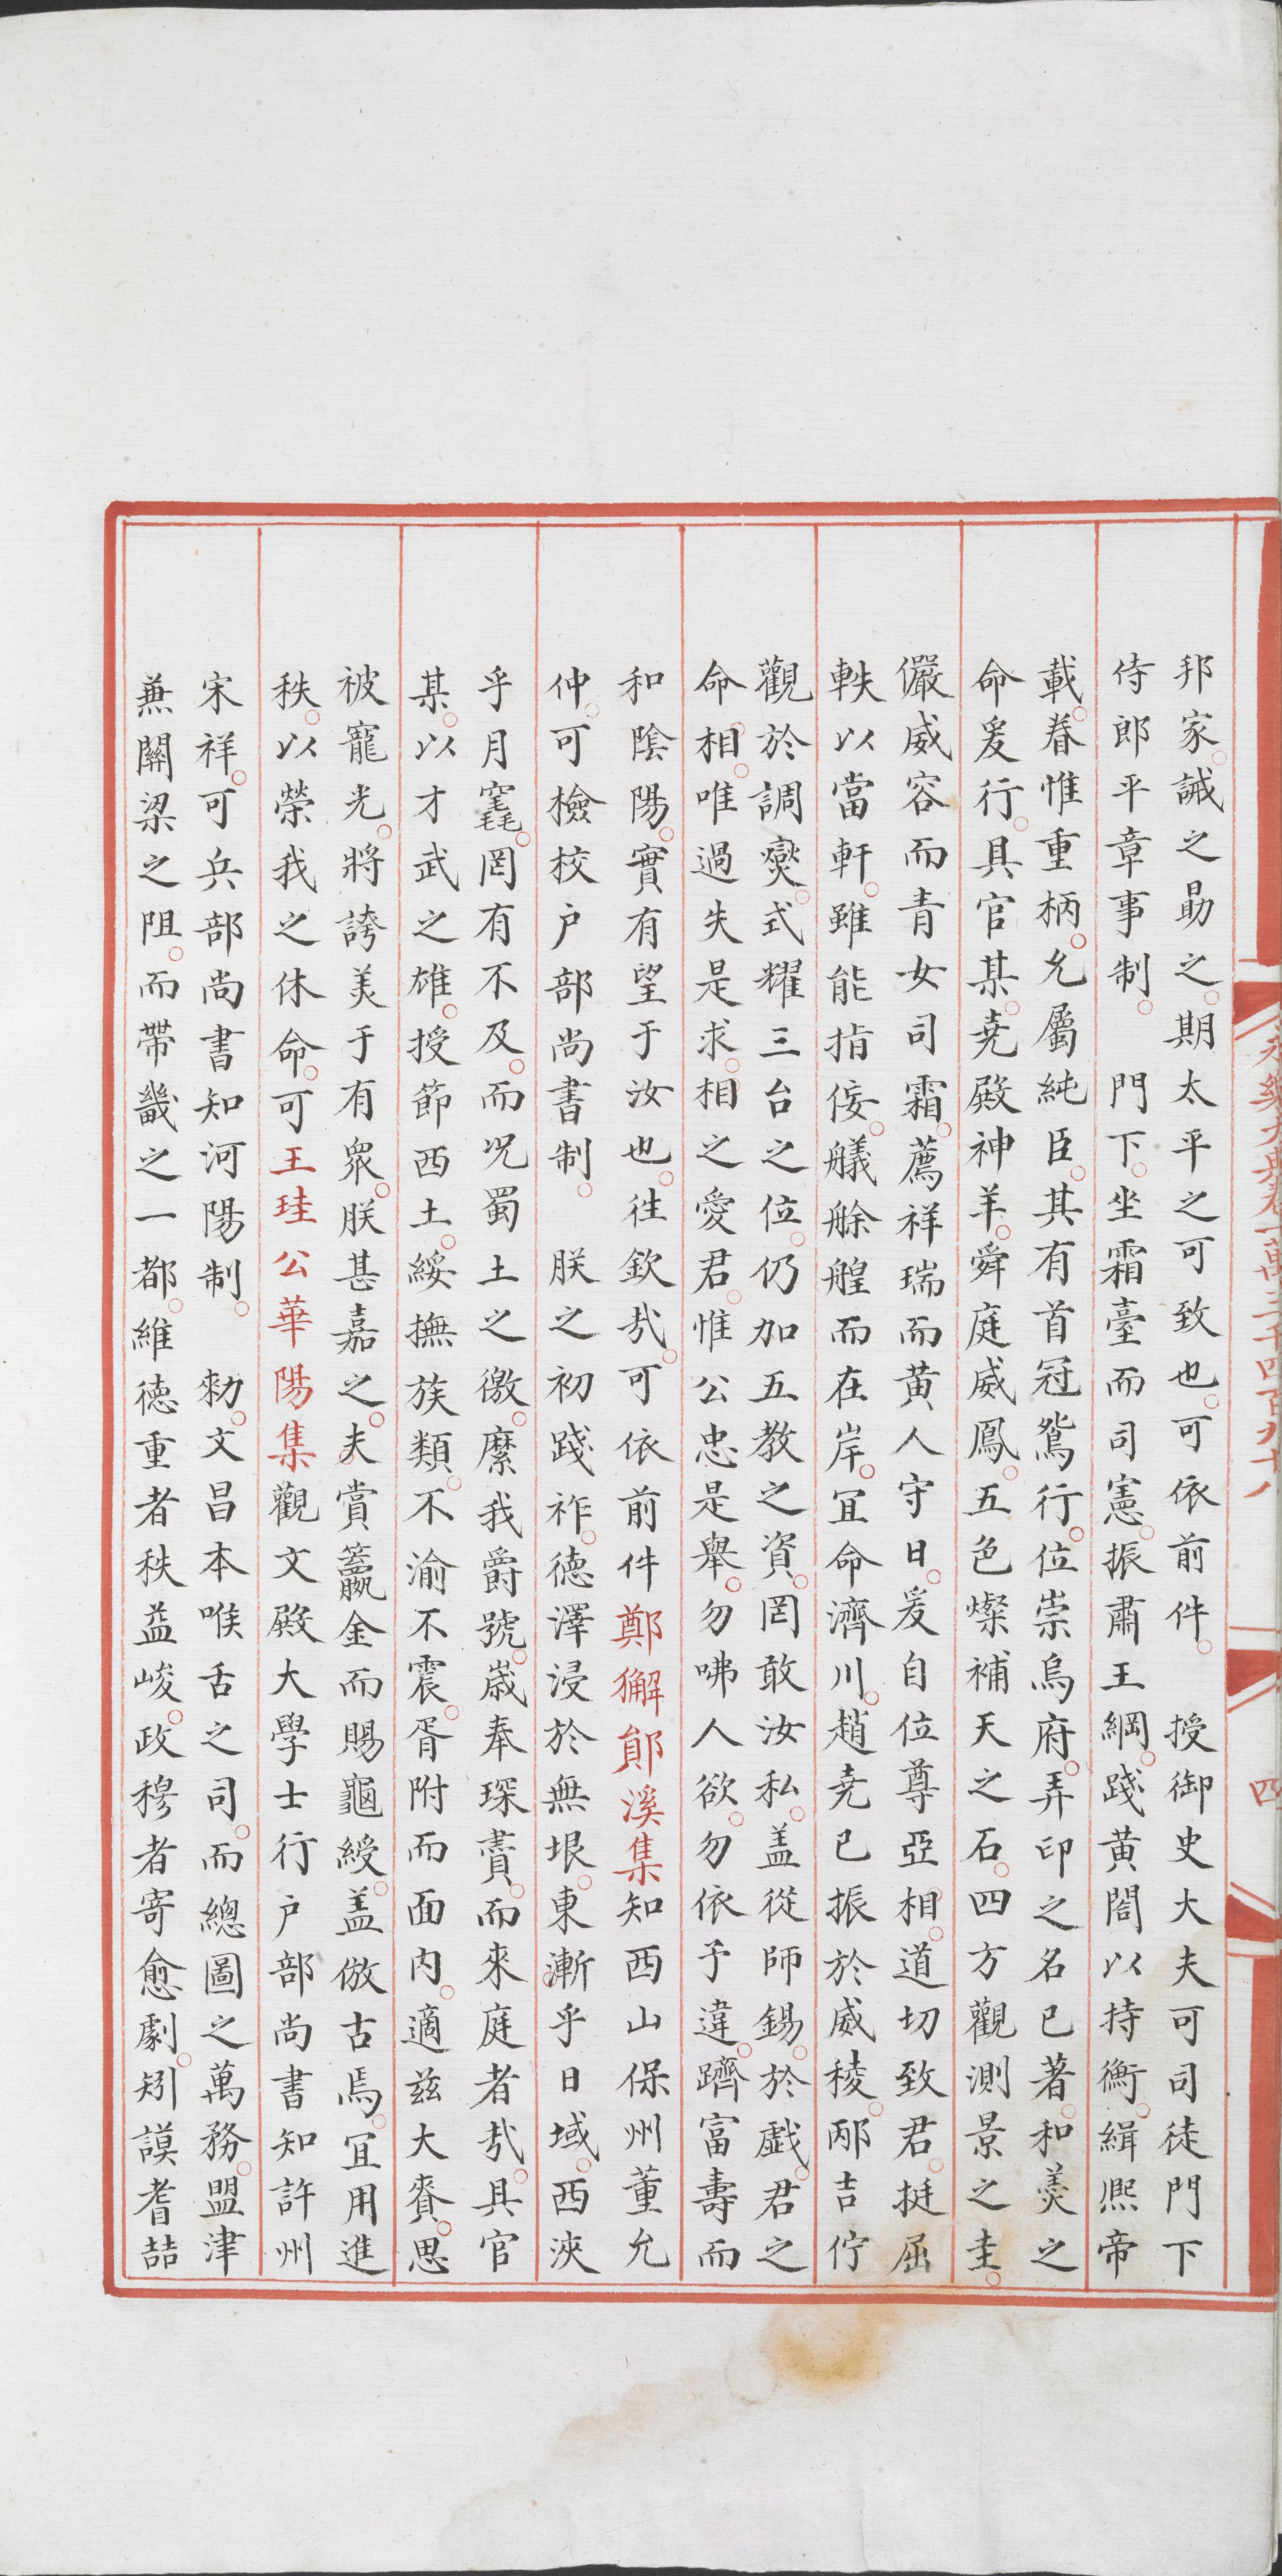 永樂大典卷一萬三千四百九十八
四
邦家。誡之勗之。期太平之可致也。可依前件。 授御史大夫可司徒門下
侍郎平章事制。 門下。坐霜臺而司憲。振肅王綱。踐黃閤以持衡。緝熙帝
載。眷惟重柄。允屬純臣。其有首冠鴛行。位崇烏府。弄印之名已著。和羹之
命爰行。具官某。堯殿神羊。舜庭威鳳。五色燦補天之石。四方觀測景之圭。
儼威容而青女司霜。薦祥瑞而黃人守日。爰自位尊亞相。道切致君。挺屈
軼以當軒。雖能指佞。艤艅艎而在岸。宜命濟川。趙堯已振於威稜。邴吉佇
觀於調燮。式耀三台之位。仍加五教之資。罔敢汝私。盖從師錫。於戲。君之
命相。唯過失是求。相之愛君。惟公忠是舉。勿咈人欲。勿依予違。躋富壽而
和陰陽。實有望于汝也。徃欽㢤。可依前件鄭獬鄖溪集知西山保州董允
仲。可檢校户部尚書制。 朕之初踐祚。德澤浸於無垠。東漸乎日域。西浹
乎月竁。罔有不及。而况蜀土之徼。縻我爵號。嵗奉琛賮。而來庭者㢤。具官
某。以才武之雄。授節西土。綏撫族類。不渝不震。胥附而面内。適兹大賚。思
被寵光。將誇羙于有衆。朕甚嘉之。夫賞籯金而賜龜綬。盖倣古焉。宜用進
秩。以榮我之休命。可王珪公華陽集觀文殿大學士行户部尚書知許州
宋祥。可兵部尚書知河陽制。 勑。文昌本喉舌之司。而總圖之萬務。盟津
蕪關梁之阻。而帶畿之一都。維德重者秩益峻。政穆者寄愈劇。矧謨耆喆